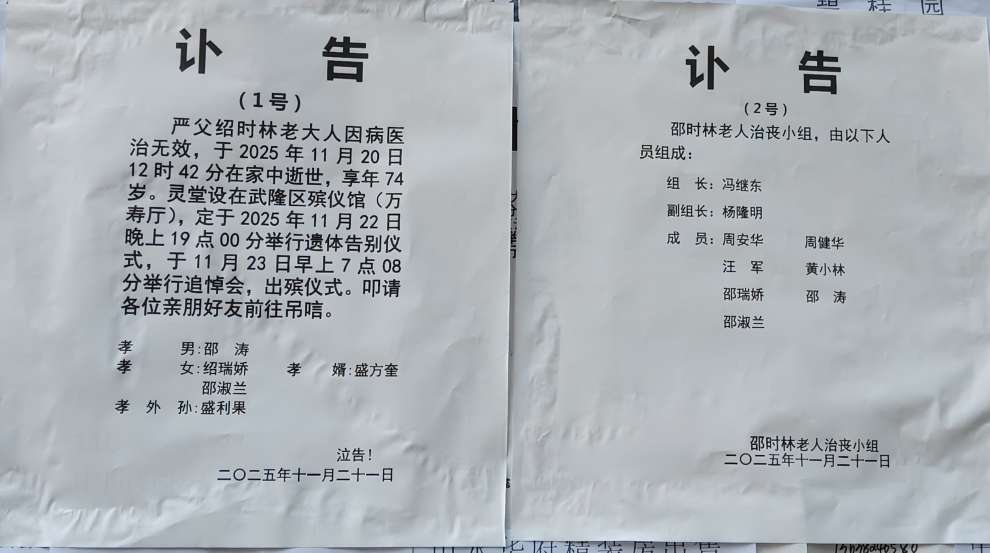 讣 告
(1号)
严父绍时林老大人因病医
治无效，于 2025 年 11 月 20 日
12 时 42 分在家中逝世，享年 74
岁。灵堂设在武隆区殡仪馆（万
寿厅），定于 2025 年 11 月 22 日
晚上 19 点 00 分举行遗体告别仪
式，于 11 月 23 日早上 7 点 08
分举行追悼会，出殡仪式。叩请
各位亲朋好友前往吊唁。
孝 男:邵 涛
孝 女:绍瑞娇 孝 婿:盛方奎
邵淑兰
孝 外 孙:盛利果
泣告！
二〇二五年十一月二十一日
讣 告
(2号)
邵时林老人治丧小组，由以下人
员组成：
组 长：冯继东
副组长：杨隆明
成 员：周安华 周健华
汪 军 黄小林
邵瑞娇 邵 涛
邵淑兰
邵时林老人治丧小组
二〇二五年十一月二十一日